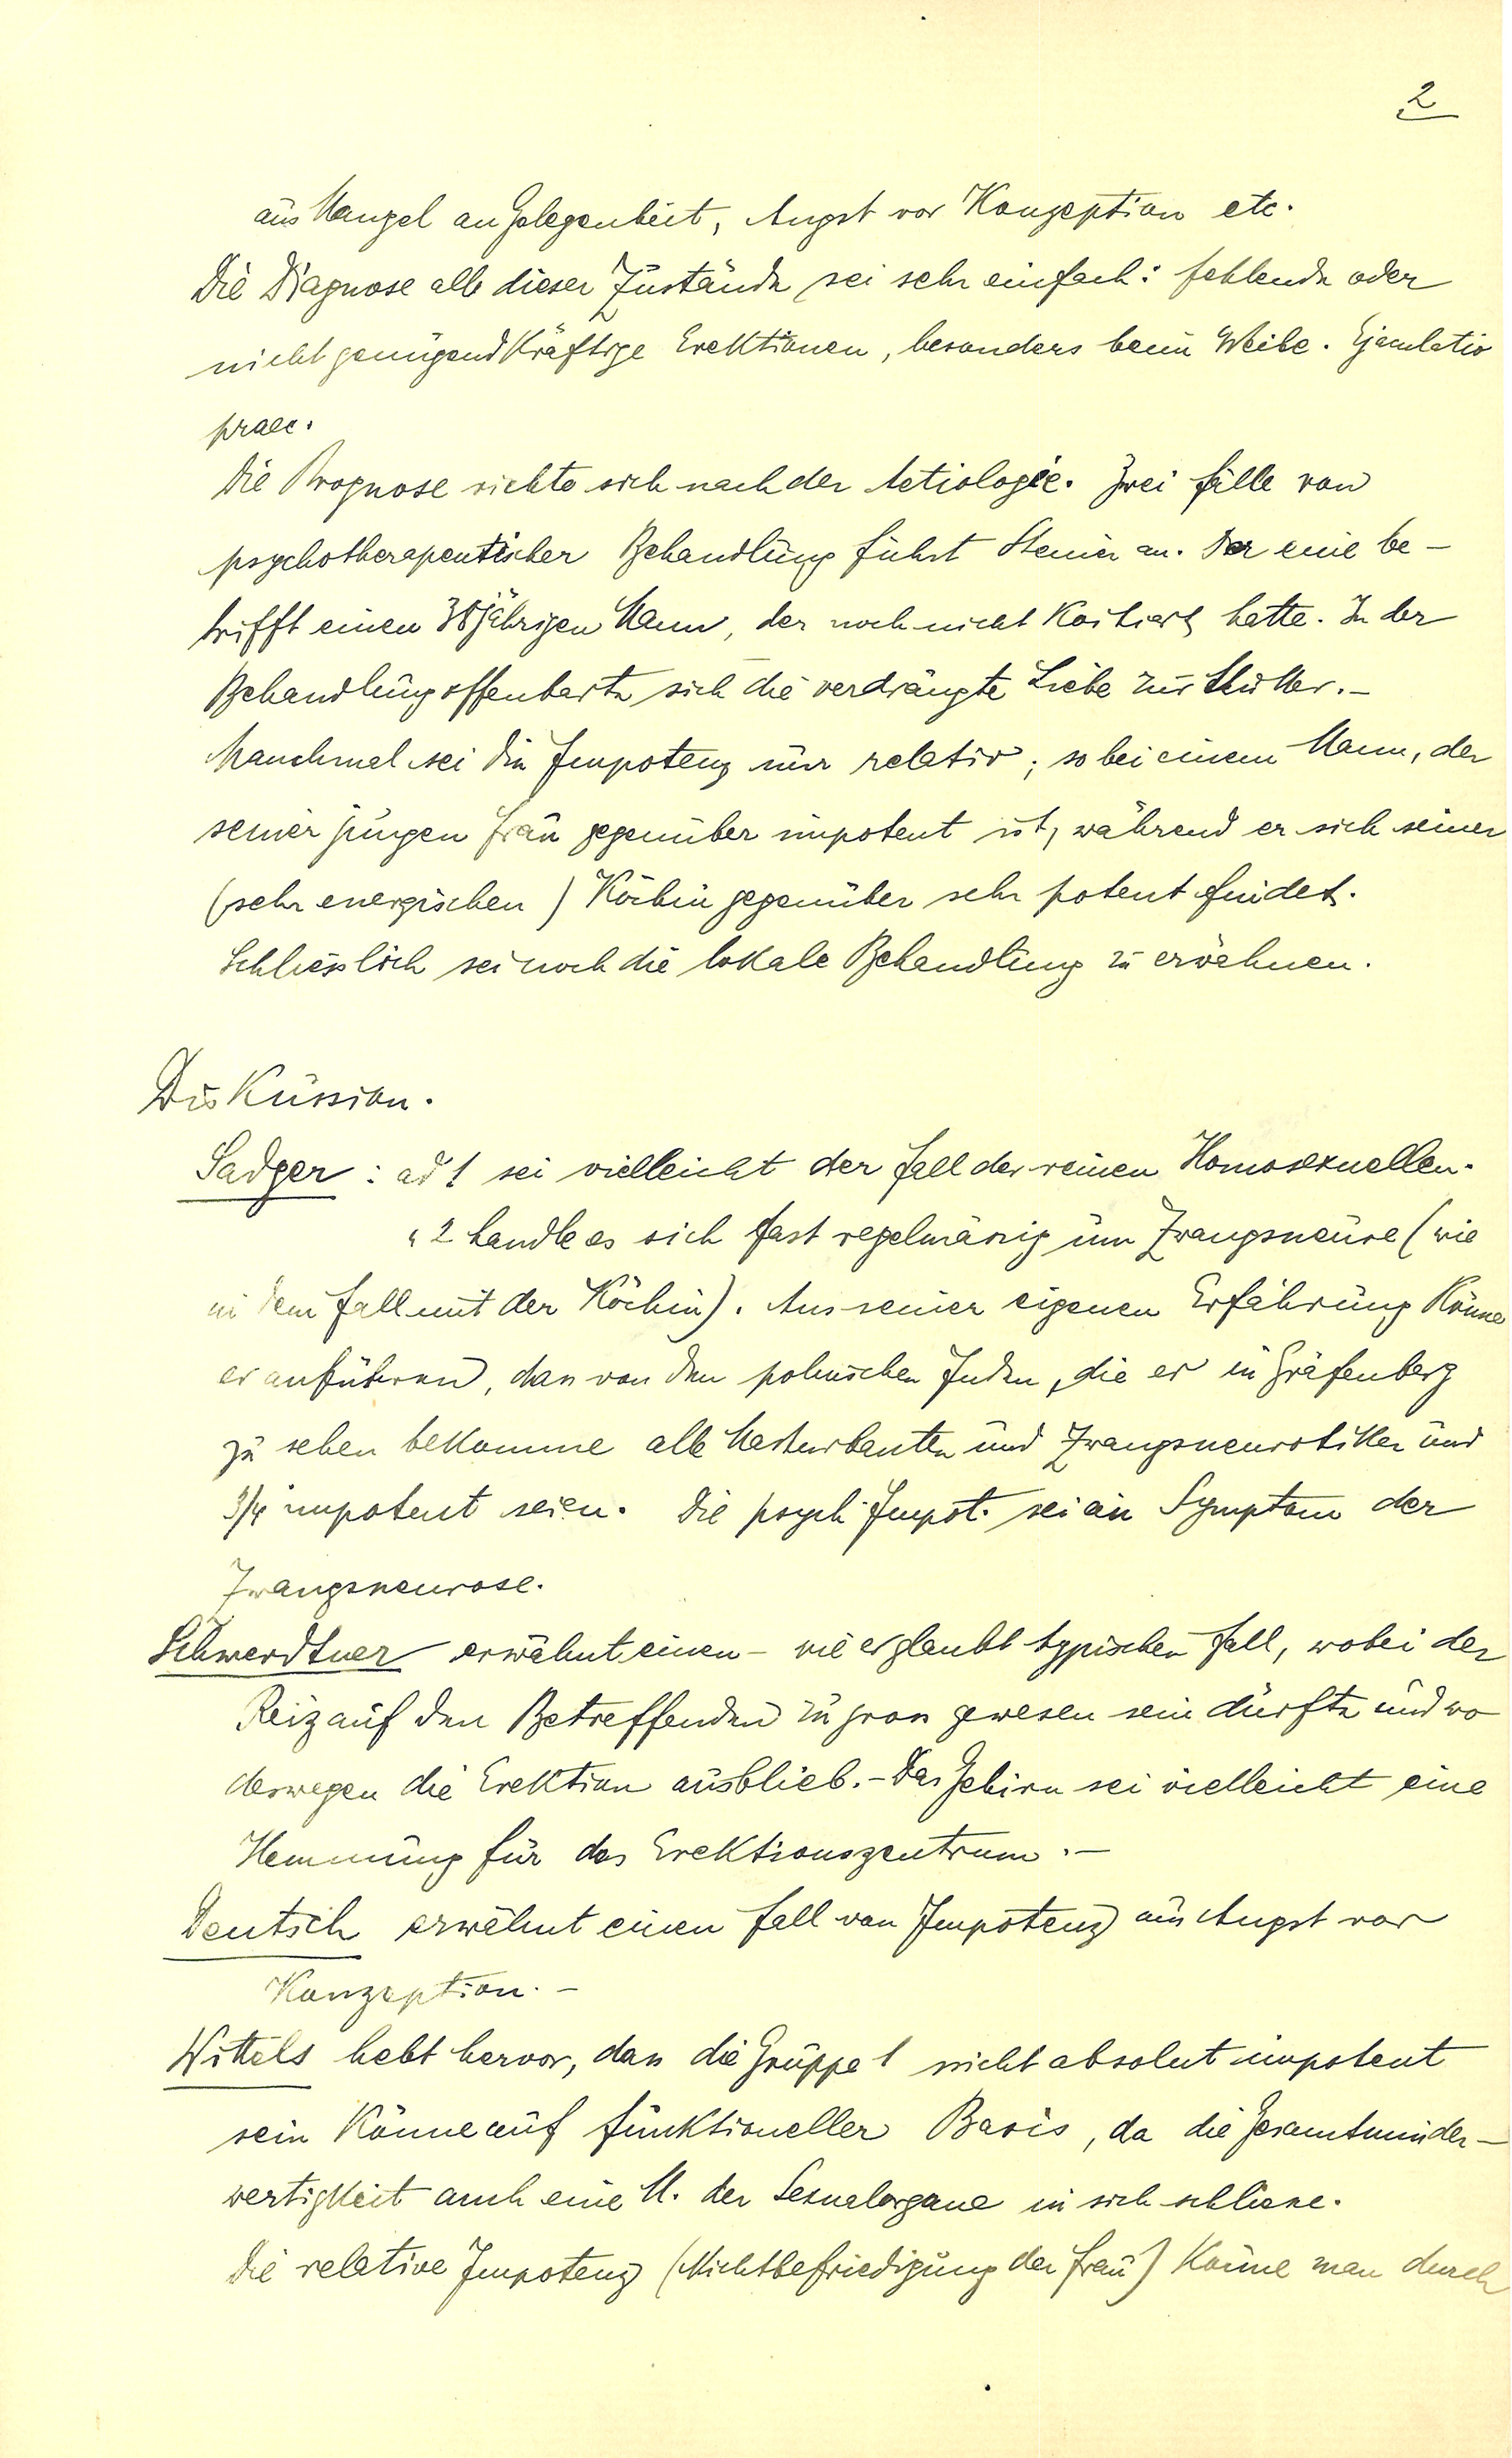 2
aus Mangel an Gelegenheit, Angst vor Konzeption etc.
Die Diagnose all dieser Zustände sei sehr einfach: fehlende oder
nicht genügend kräftige Erektionen, besonders beim Weibe. Ejaculatio
praec.
Die Prognose richte sich nach der Aetiologie. Zwei Fälle von
psychotherapeutischer Behandlung führt Steiner an. Der eine be-
trifft einen 38jährigen Mann, der noch nicht koitiert hatte. In der
Behandlung offenbarte sich die verdrängte Liebe zur Mutter.-
Manchmal sei die Impotenz nur relativ; so bei einem Mann, der
seiner jungen Frau gegenüber impotent ist, während er sich seiner
(sehr energischen) Köchin gegenüber sehr potent findet.
Schliesslich sei noch die lokale Behandlung zu erwähnen.
Diskussion.
Sadger: ad 1 sei vielleicht der Fall des reinen Homosexuellen.
" 2 handle es sich fast regelmässig um Zwangsneurose (wie
in dem Fall mit der Köchin). Aus seiner eigenen Erfahrung könne
er anführen, dass von den polnischen Juden, die er in Gräfenberg
zu sehen bekomme alle Masturbanten und Zwangsneurotiker und
3/4 impotent seien. Die psych. Impot. sei ein Symptom der
Zwangsneurose.
Schwerdtner erwähnt einen - wie er glaubt typischen Fall, wobei der
Reiz auf den Betreffenden zu gross gewesen sein dürfte und wo
deswegen die Erektion ausblieb.- Das Gehirn sei vielleicht eine
Hemmung für das Erektionszentrum.-
Deutsch erwähnt einen Fall von Impotenz aus Angst vor
Konzeption.-
Wittels hebt hervor, dass die Gruppe 1 nicht absolut impotent
sein könne auf funktioneller Basis, da die Gesamtminder-
wertigkeit auch eine M. der Sexualorgane in sich schliesse.
Die relative Impotenz (Nichtbefriedigung der Frau) könne man durch